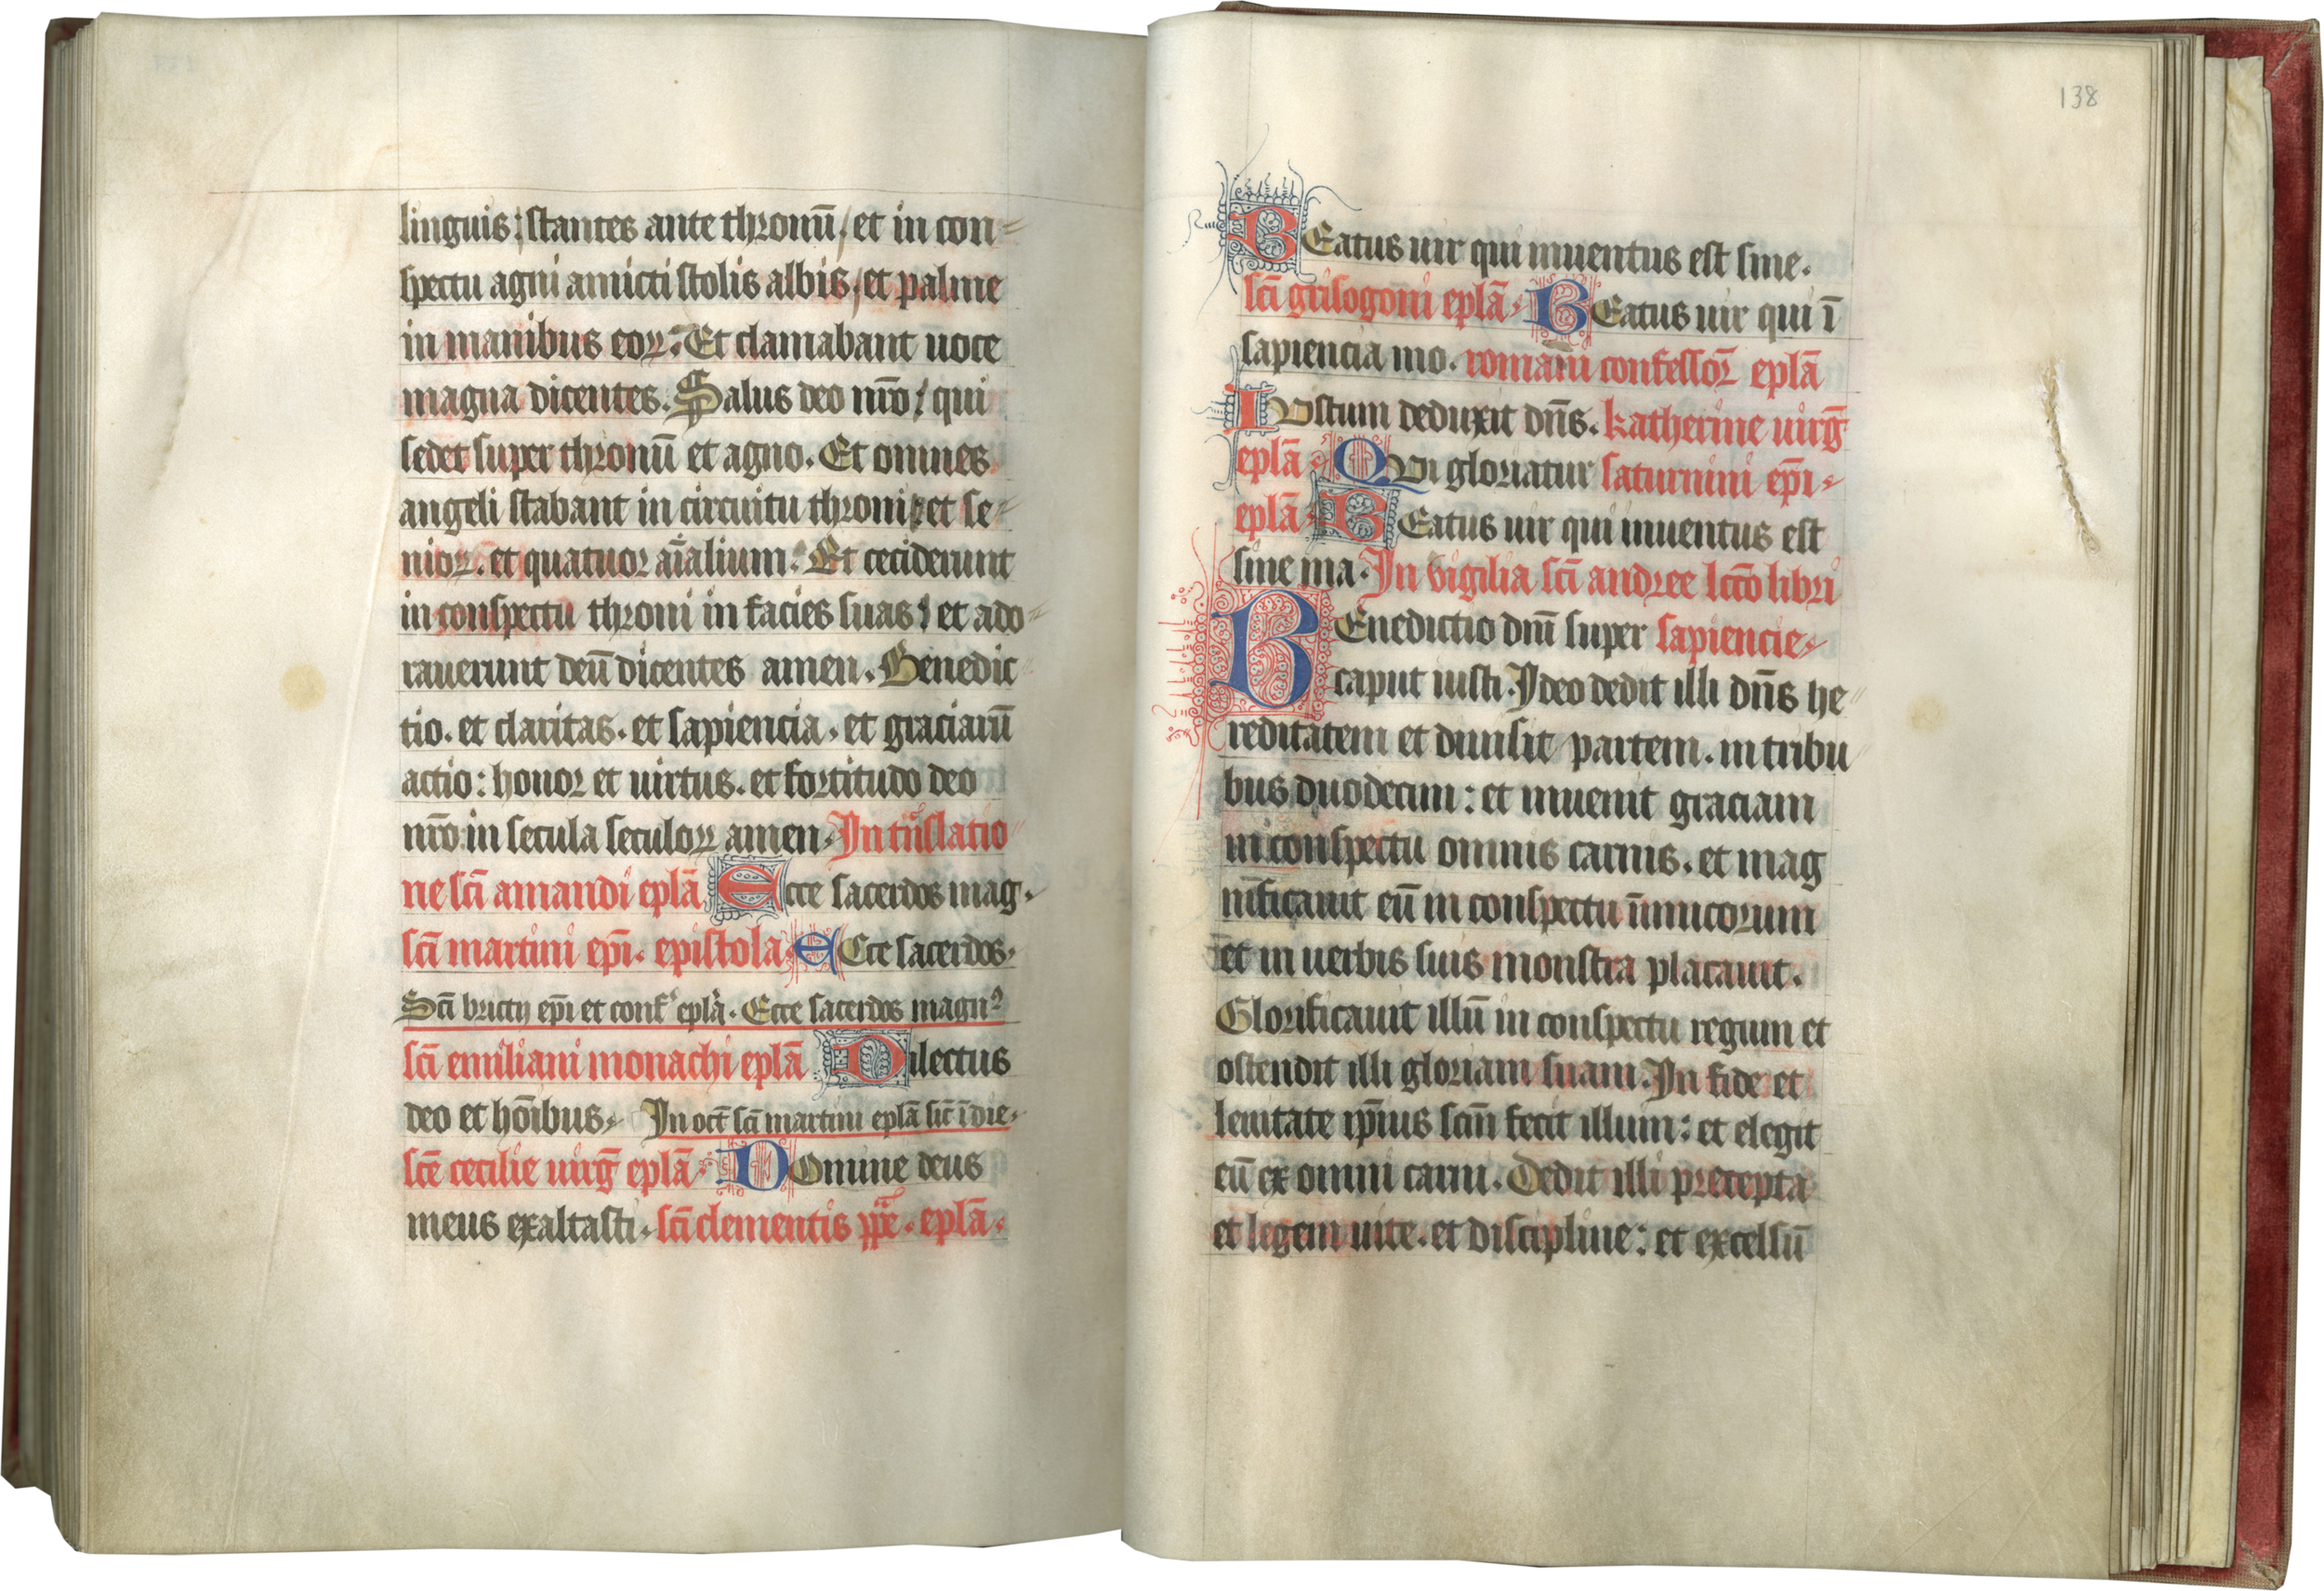 linguis; stantes ante thronū, et in con-
spectu agni amicti stolis albis, et palme
in manibus eoꝝ. Et clamabant uoce
magna dicentes. Salus deo nr̄o; qui
sedet super thronū et agno. Et omnes
angeli stabant in circuitu throni; et se-
nioꝝ. et quatuor aīalium. Et ceciderunt
in conspectu throni in facies suas; et ado-
rauerunt deū dicentes amen. Benedic-
tio. et claritas. et sapiencia. et graciarū
actio: honor et uirtus. et fortitudo deo
nr̄o in secula seculoꝝ amen. In trāslatio
ne sc̄i amandi epl̄a Ecce sacerdos mag.
sc̄i martini ep̄i. epistola. eCce sacerdos.
Sc̄i brictij ep̄i et conf epl̄a. Ecce sacerdos magnꝰ
sc̄i emiliani monachi epl̄a Dilectus
deo et hōibus. In oct̄ sc̄i martini epl̄a sic̄ ī die.
sc̄e cecilie uirḡ epl̄a. DOmine deus
meus exaltasti. sc̄i clementis pp̄e. epl̄a.
138
BEatus uir qui inuentus est sine.
sc̄i grisogoni epl̄a. BEatus uir qui ī
sapiencia mo. romani confessor̄ epl̄a
IVstum deduxit dn̄s. katherine uirḡ
epl̄a. QVi gloriatur saturnini ep̄i.
epl̄a. BEatus uir qui inuentus est
sine ma. In vigilia sc̄i andree lcc̄o libri
BEnedictio dn̄i super sapiencie.
caput iusti. Ideo dedit illi dn̄s he
reditatem et diuisit partem. in tribu
bus duodecim: et inuenit graciam
in conspectu omnis carnis. et mag
nificauit eū in conspectu inimicorum
et in uerbis suis monstra placauit.
Glorificauit illū in conspectu regum et
ostendit illi gloriam suam. In fide et
lenitate ip̄ius sc̄m fecit illum: et elegit
eū ex omni carni. Dedit illi precepta
et legem uite. et discipline: et excelsū